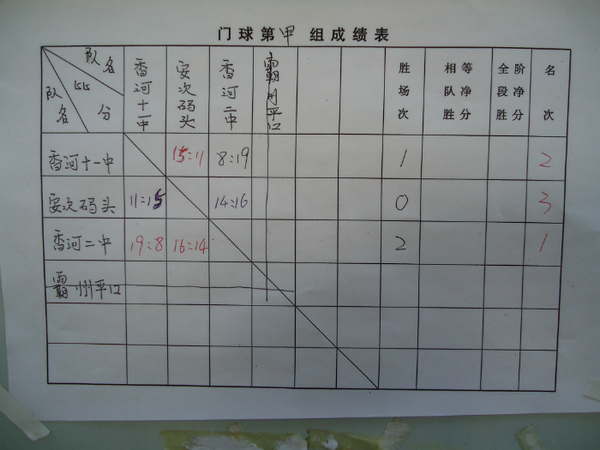 门球第甲组成绩表
队名 比分 队名 香河十一中 安次码头 香河二中 霸州平口 胜场次 相队胜 等净分 全段胜 阶净分 名次
香河十一中 15:11 8:19 1 2
安次码头 11:15 14:16 0 3
香河二中 19:8 16:14 2 1
霸州平口